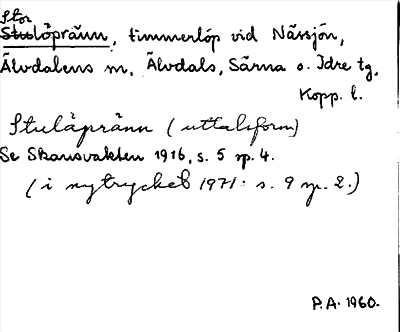 Stor
Stulöpränn, timmerlöp vid Nässjön,
Älvdalens m, Älvdals, Särna o. Idre tg,
Kopp. l.
Stuläpränn (uttalsform)
Se Skansvakten 1916, s. 5 sp. 4.
(i nytrycket 1971: s. 9 sp. 2.)
P.A. 1960.